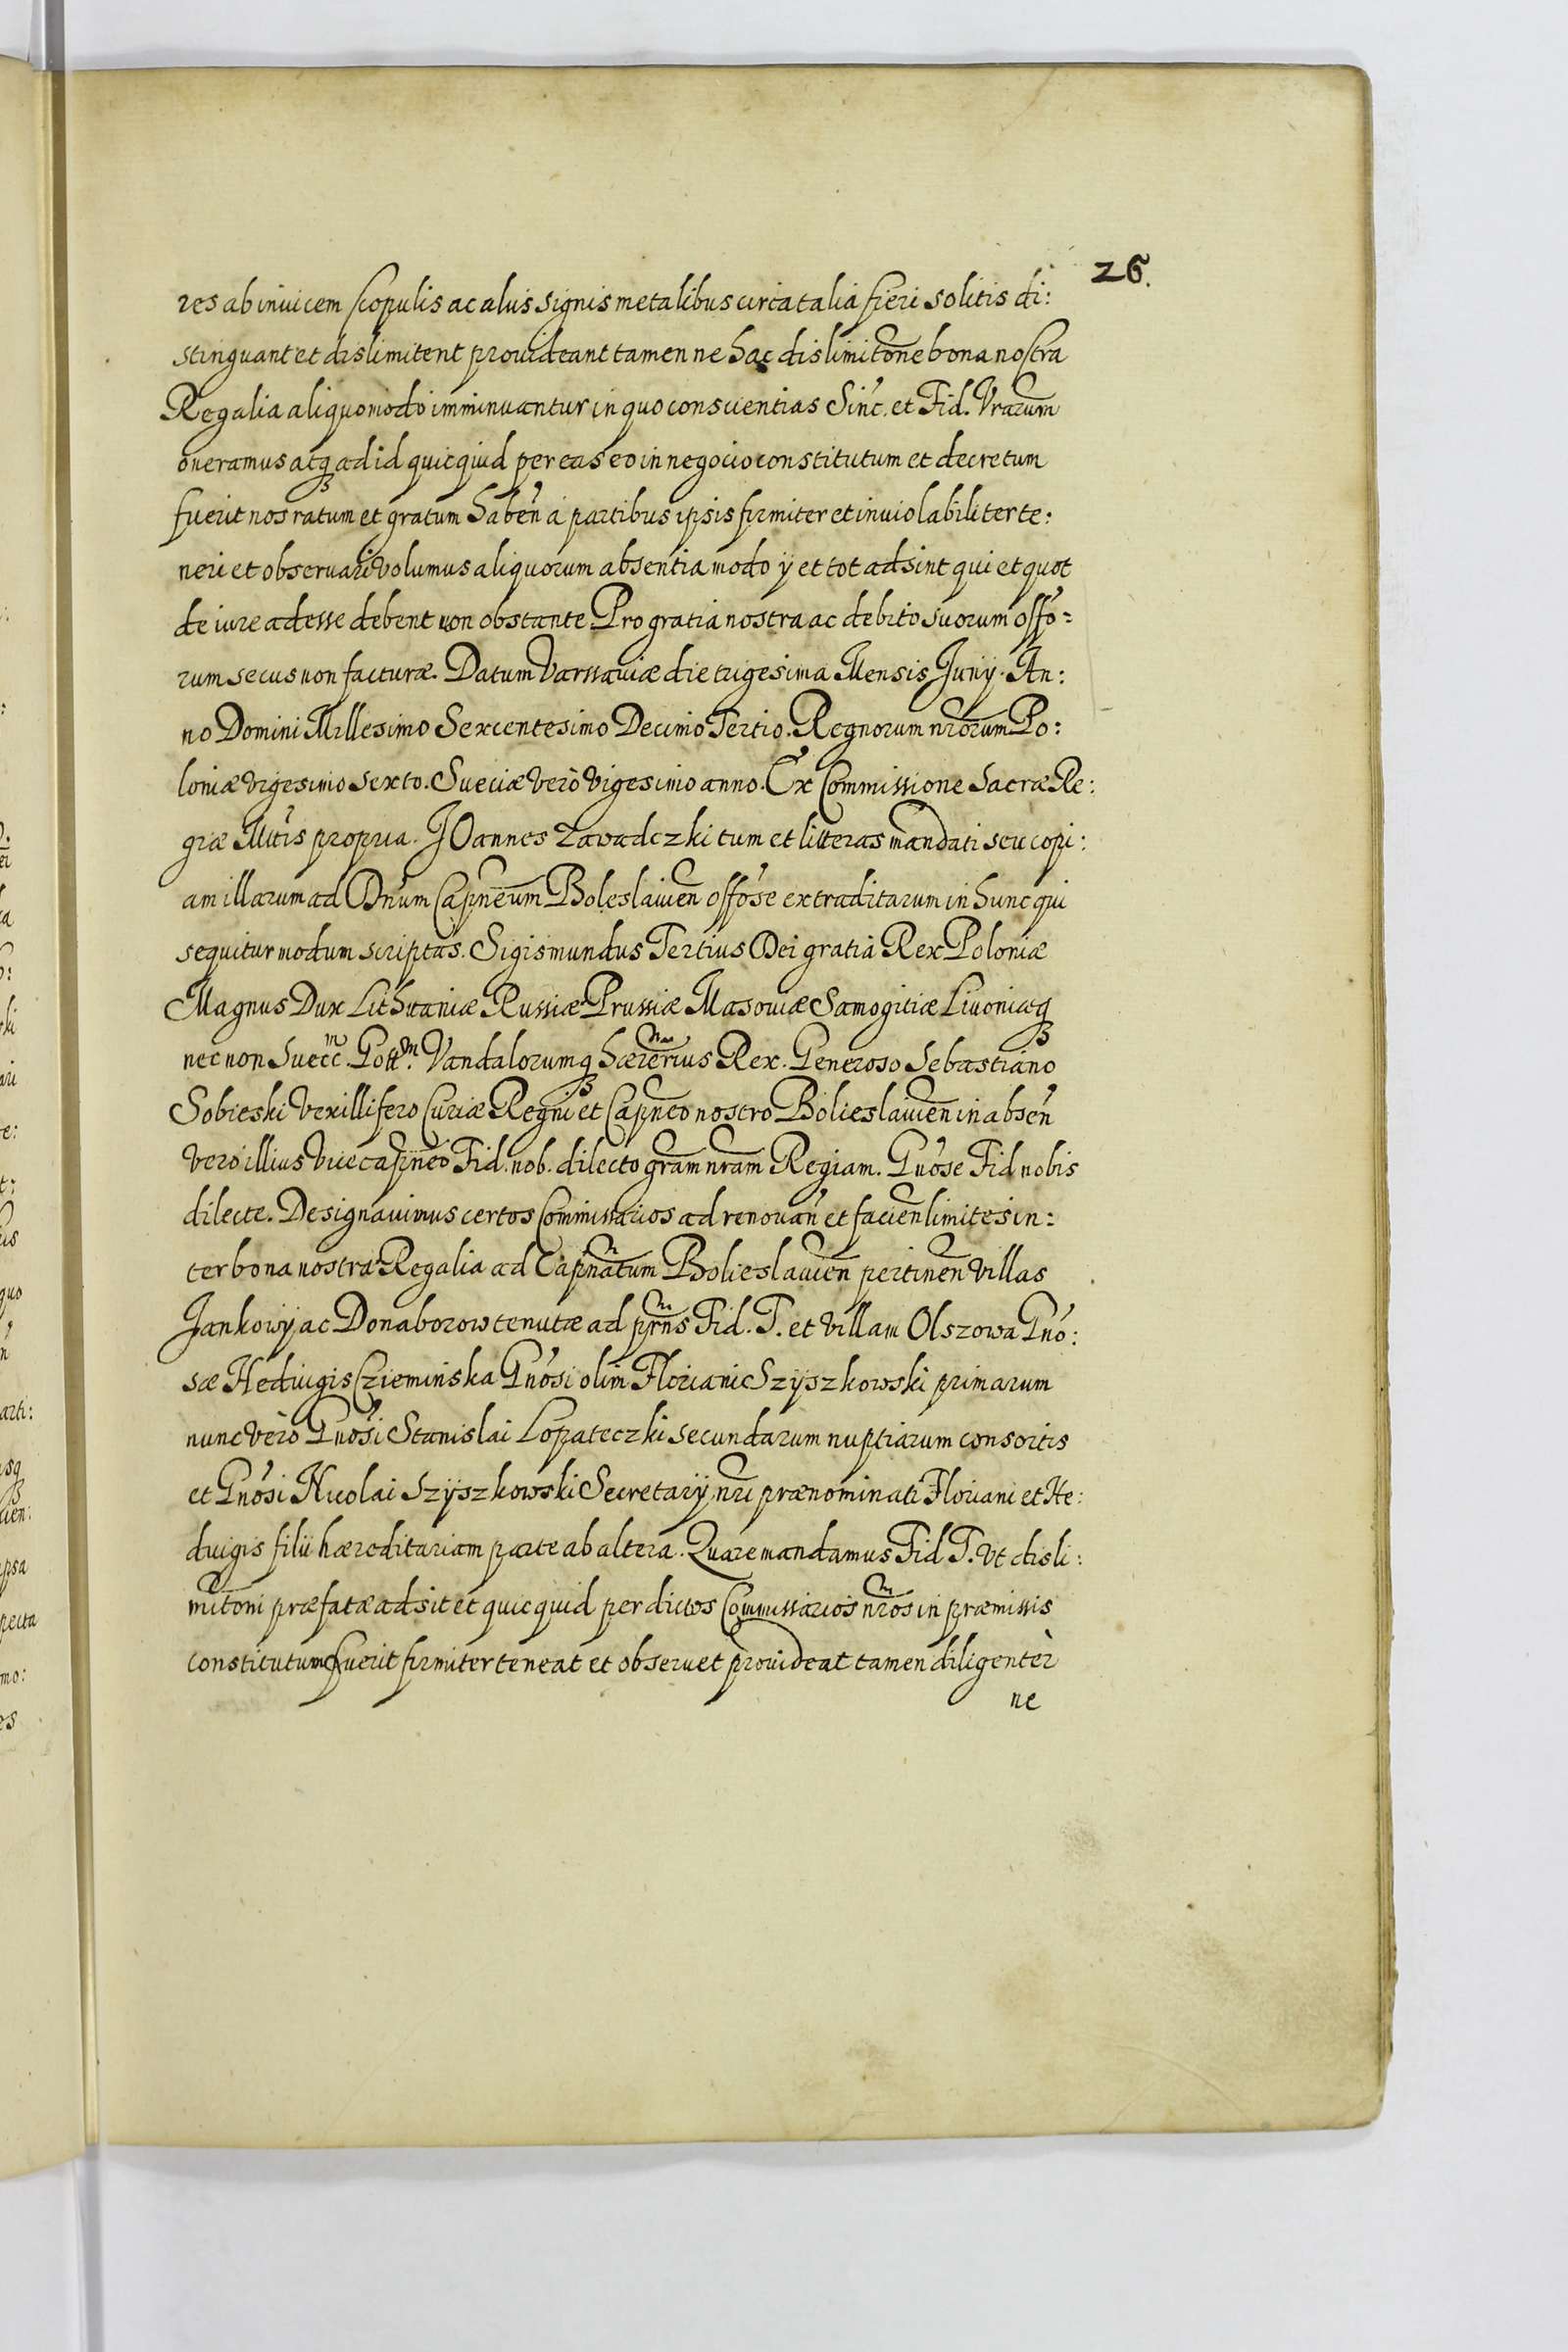 26.
res ab inuicem scopulis ac aliis signis metalibus circa talia fieri solitis di:
stinguant et dislimitent prouideant tamen ne hac dislimitõne bona nostra
Regalia aliquomodo imminuantur in quo conscientias Sinc. et Fid. Vrarum
oneramus atq₃ ad id quicquid per eas eo in negocio constitutum et decretum
fuerit nos ratum et gratum haben̄ a partibus ipsis firmiter et inuiolabiliter te:
neri et obseruari volumus aliquorum absentia modo ÿ et tot adsint qui et quot
de iure adesse debent non obstante Pro gratia nostra ac debito suorum offo:
rum secus non facturæ. Datum Varssauiæ die trigesima Mensis Junÿ. An:
no Domini Millesimo Sexcentesimo Decimo Tertio. Regnorum nr̄orum Po:
loniæ vigesimo sexto. Sueciæ verò vigesimo anno. Ex Commissione Sacræ Re:
giæ Mtis propria. JOannes Zawadczki tum et litteras mandati seu copi:
am illarum ad Dnum Capneum Boleslauien̄ offose extraditarum in hunc qui
sequitur modum scriptas. Sigismundus Tertius Dei gratia Rex Poloniæ
Magnus Dux Lithuaniæ Russiæ Prussiæ Masouiæ Samogitiæ Liuoniæq₃
nec non Suecc͞m. Gott͞m. Vandalorumq₃ hærērius Rex. Generoso Sebastiano
Sobieski Vexillifero Curiæ Regni et Capneo nostro Bolieslauien̄ in absen̄
vero illius vicecapneo Fid. nob. dilecto gram nram Regiam. Gnose Fid nobis
dilecte. Designauimus certos Commissarios ad renouan̄ et facien̄ limites in:
ter bona nostra Regalia ad Capnatum Bolieslauien̄ pertinen̄ villas
Jankowÿ ac Donaborow tenutæ ad prn̄s Fid. T. et villam Olszowa Gno:
sæ Heduigis Czieminska Gnosi olim Floriani Szÿszkowski primarum
nunc verò Gnosi Stanislai Lopateczki secundarum nuptiarum consortis
et Gnosi Nicolai Szÿszkowski Secretarÿ nri prænominati Floriani et He:
duigis filii hæreditariam parte ab altera. Quare mandamus Fid T. vt disli:
mitoni præfatæ adsit et quicquid per dictos Commissarios nr̄os in præmissis
constitutum fuerit firmiter teneat et obseruet prouideat tamen diligentèr
ne